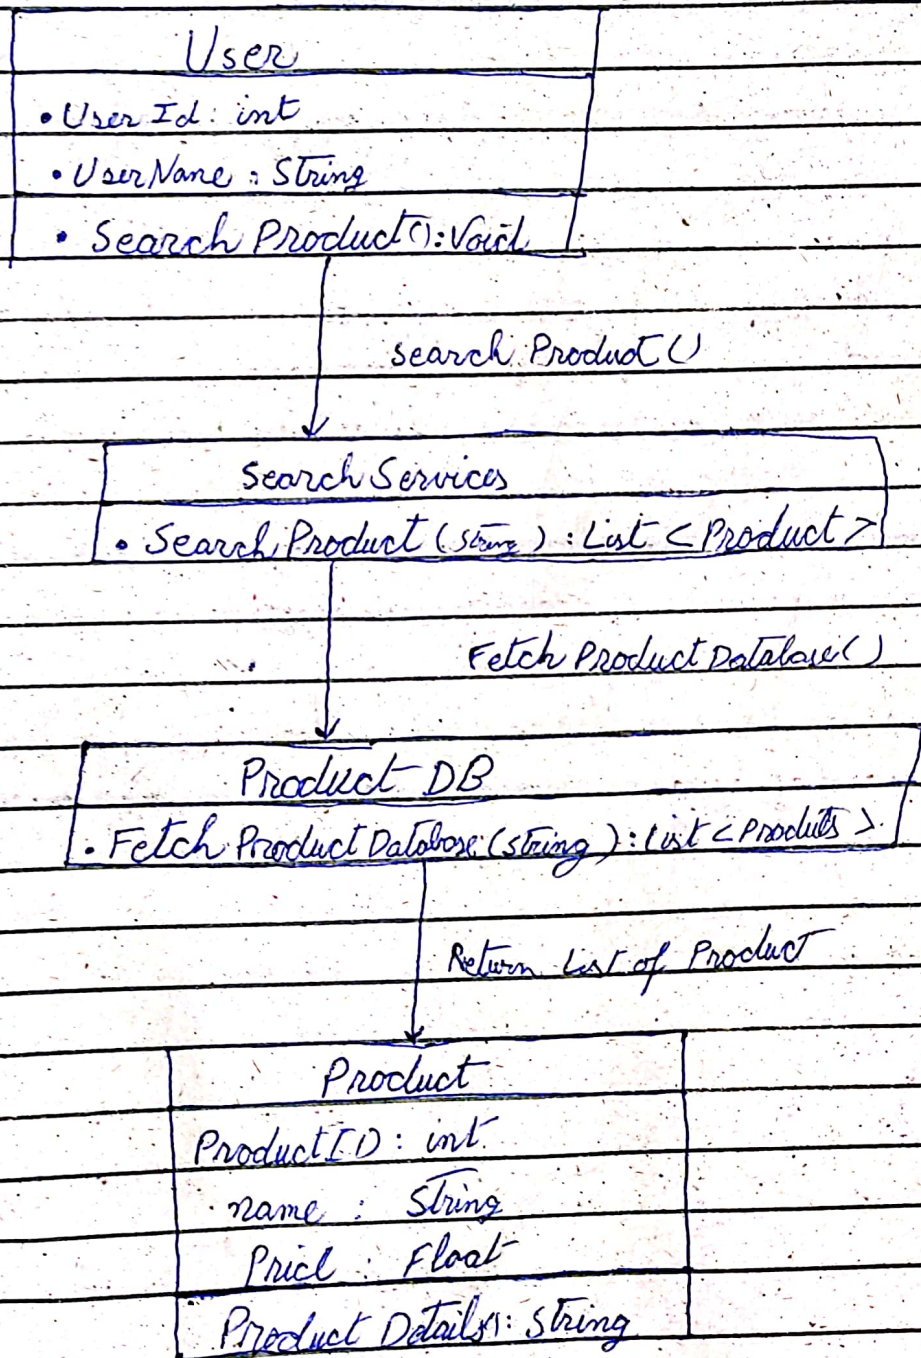 User
• User Id: int
• UserName: String
• Search Product(): Void
search Product()
Search Services
• Search Product (string) : List <Product>
Fetch Product Database()
Product DB
• Fetch Product Database (string) : List <Produts>.
Return List of Product
Product
ProductID: int
name : String
Price : Float
Product Details(): String